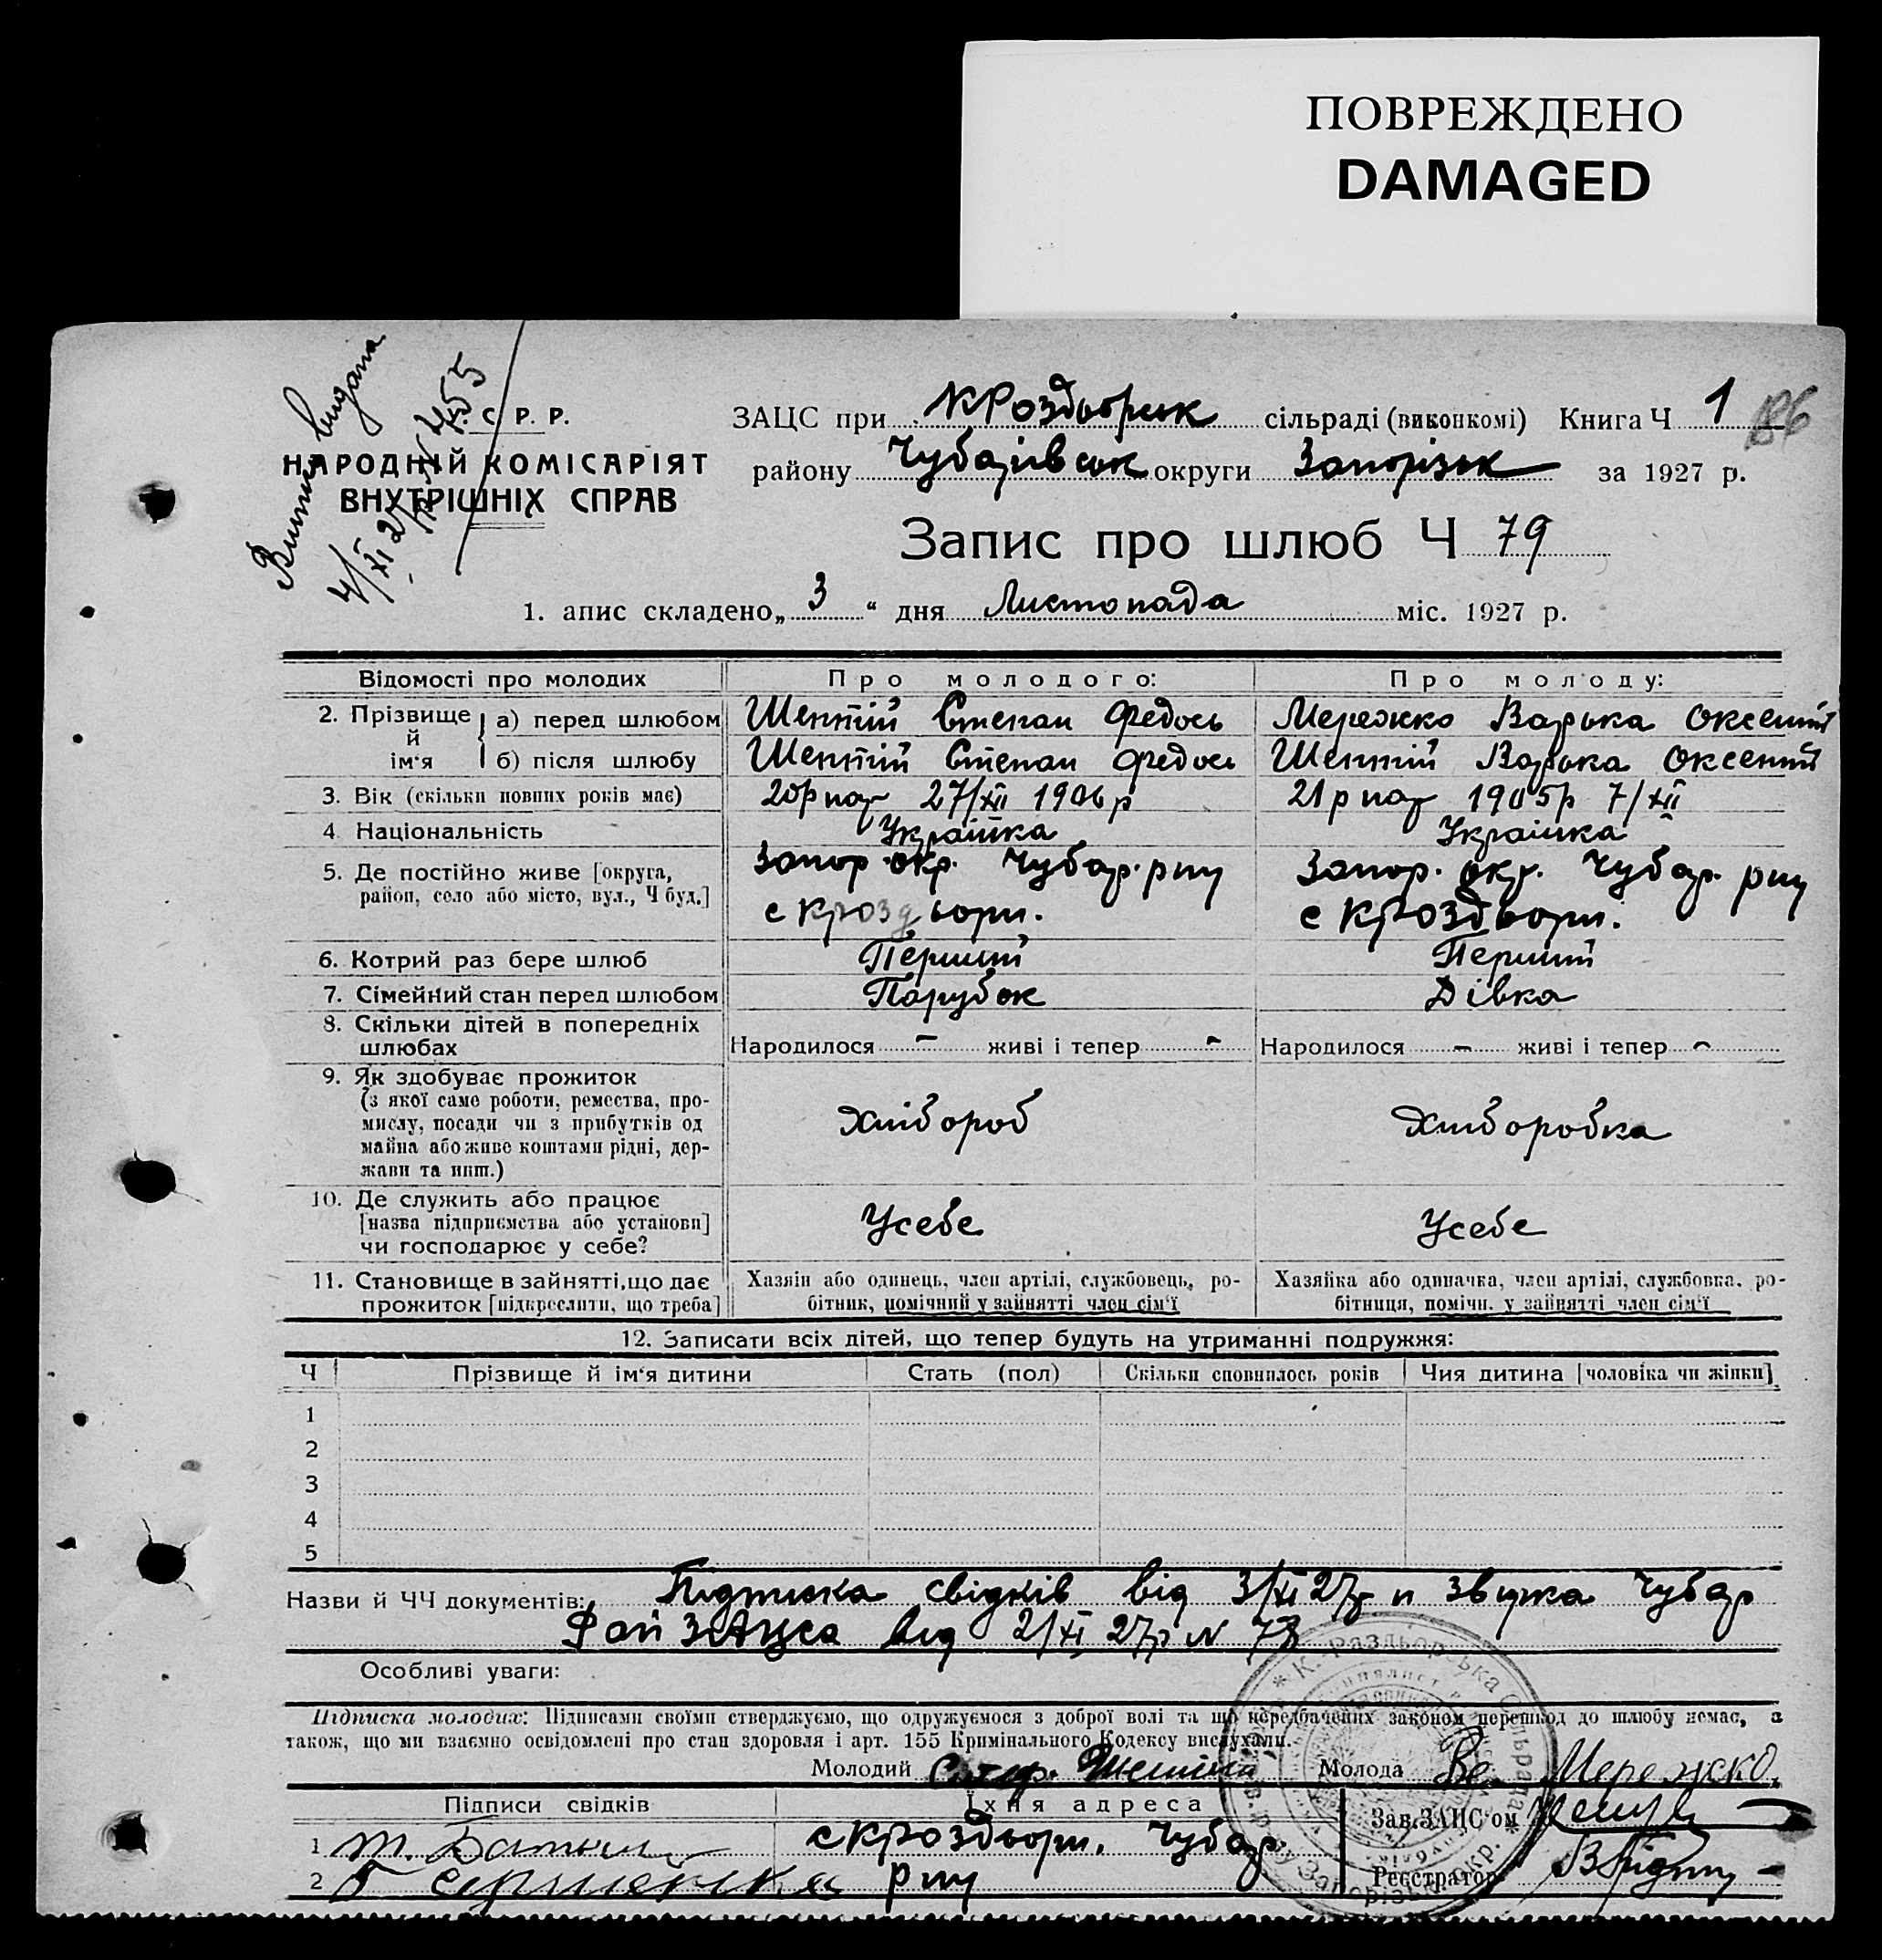 ПОВРЕЖДЕНО
DAMAGED
Витяг видана
4/XI 27 р. N 455
С. Р. Р.
НАРОДНІЙ КОМІСАРІЯТ
ВНУТРІШНІХ СПРАВ
ЗАЦС при КРоздьорськ сільраді (виконкомі) Книга Ч 1
186
району Чубарівськ округи Запорізьк за 1927 р.
Запис про шлюб Ч 79
1. апис складено „ 3 “ дня Листопада міс. 1927 р.
Відомості про молодих Про молодого: Про молоду:
2. Прізвище й ім‘я а) перед шлюбом Шептій Степан Федось Мережко Варька Оксентій
б) після шлюбу Шептій Степан Федось Шептій Варька Оксентій
3. Вік (скільки повних років має) 20р нар 27/XII 1906р 21р нар 1905р 7/XII
4. Національність Українка Українка
5. Де постійно живе [округа, район, село або місто, вул., Ч буд.] Запор. окр. Чубар. рну Запор. окр. Чубар. рну
с Кроздьорм. с Кроздьорм.
6. Котрий раз бере шлюб Перший Перший
7. Сімейний стан перед шлюбом Парубок Дівка
8. Скільки дітей в попередніх шлюбах Народилося - живі і тепер - Народилося - живі і тепер -
9. Як здобуває прожиток
(з якої само роботи, ремества, про-
мислу, посади чи з прибутків од
майна або живе коштами рідні, дер-
жави та инш.) Хлібороб Хліборобка
10. Де служить або працює
[назва підприємства або установи]
чи господарює у себе? Усебе Усебе
11. Становище в зайнятті, що дає
прожиток [підкреслити, що треба]
Хазяін або одинець, член артілі, службовець, ро-
бітник, помічний у зайнятті член сім‘ї
Хазяйка або одиначка, член артілі, службовка, ро-
бітниця, помічн. у зайнятті член сім‘ї
12. Записати всіх дітей, що тепер будуть на утриманні подружжя:
Ч Прізвище й ім‘я дитини Стать (пол) Скільки сповнилось років Чия дитина [чоловіка чи жінки]
1
2
3
4
5
Назви й ЧЧ документів: Підписка свідків від 3/XI 27р и звідка Чубар
Рай ЗАЦСа від 2/XI 27р N 73
Особливі уваги:
Підписка молодих: Підписами своїми стверджуємо, що одружуємося з доброї волі та що передбачених законом перешкод до шлюбу немає, а
також, що ми взаємно освідомлені про стан здоровля і арт. 155 Кримінального Кодексу вислухали.
Молодий Молода Мережко
Підписи свідків Їхня адреса Зав. ЗАЦС‘ом
1 с Кроздьорм. Чубар.
2 рну Реєстратор
К. Раздьорська Сільрада
Запорізьк. окр.